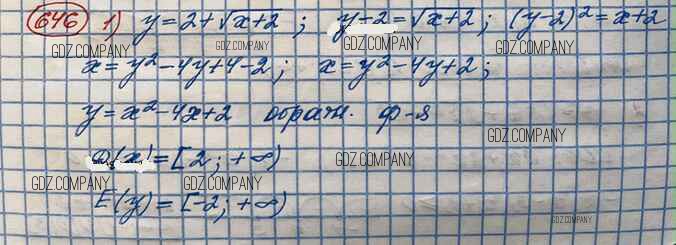 646 1) y = 2 + √x+2 ; y - 2 = √x+2 ; (y-2)² = x+2
GDZ.COMPANY GDZ.COMPANY GDZ.COMPANY
x = y² - 4y + 4 - 2 ; x = y² - 4y + 2 ;
GDZ.COMPANY
y = x² - 4x + 2 обратн. ф-я
GDZ.COMPANY
D(x) = [2 ; +∞)
GDZ.COMPANY
GDZ.COMPANY GDZ.COMPANY
E(y) = [-2 ; +∞)
GDZ.COMPANY